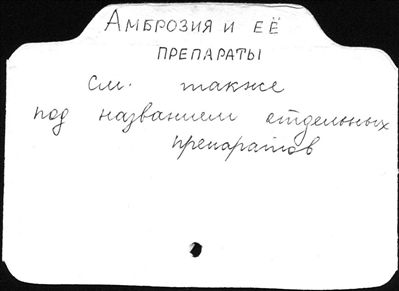 Амброзия и её
препараты
см. также
под названием отдельных
препаратов